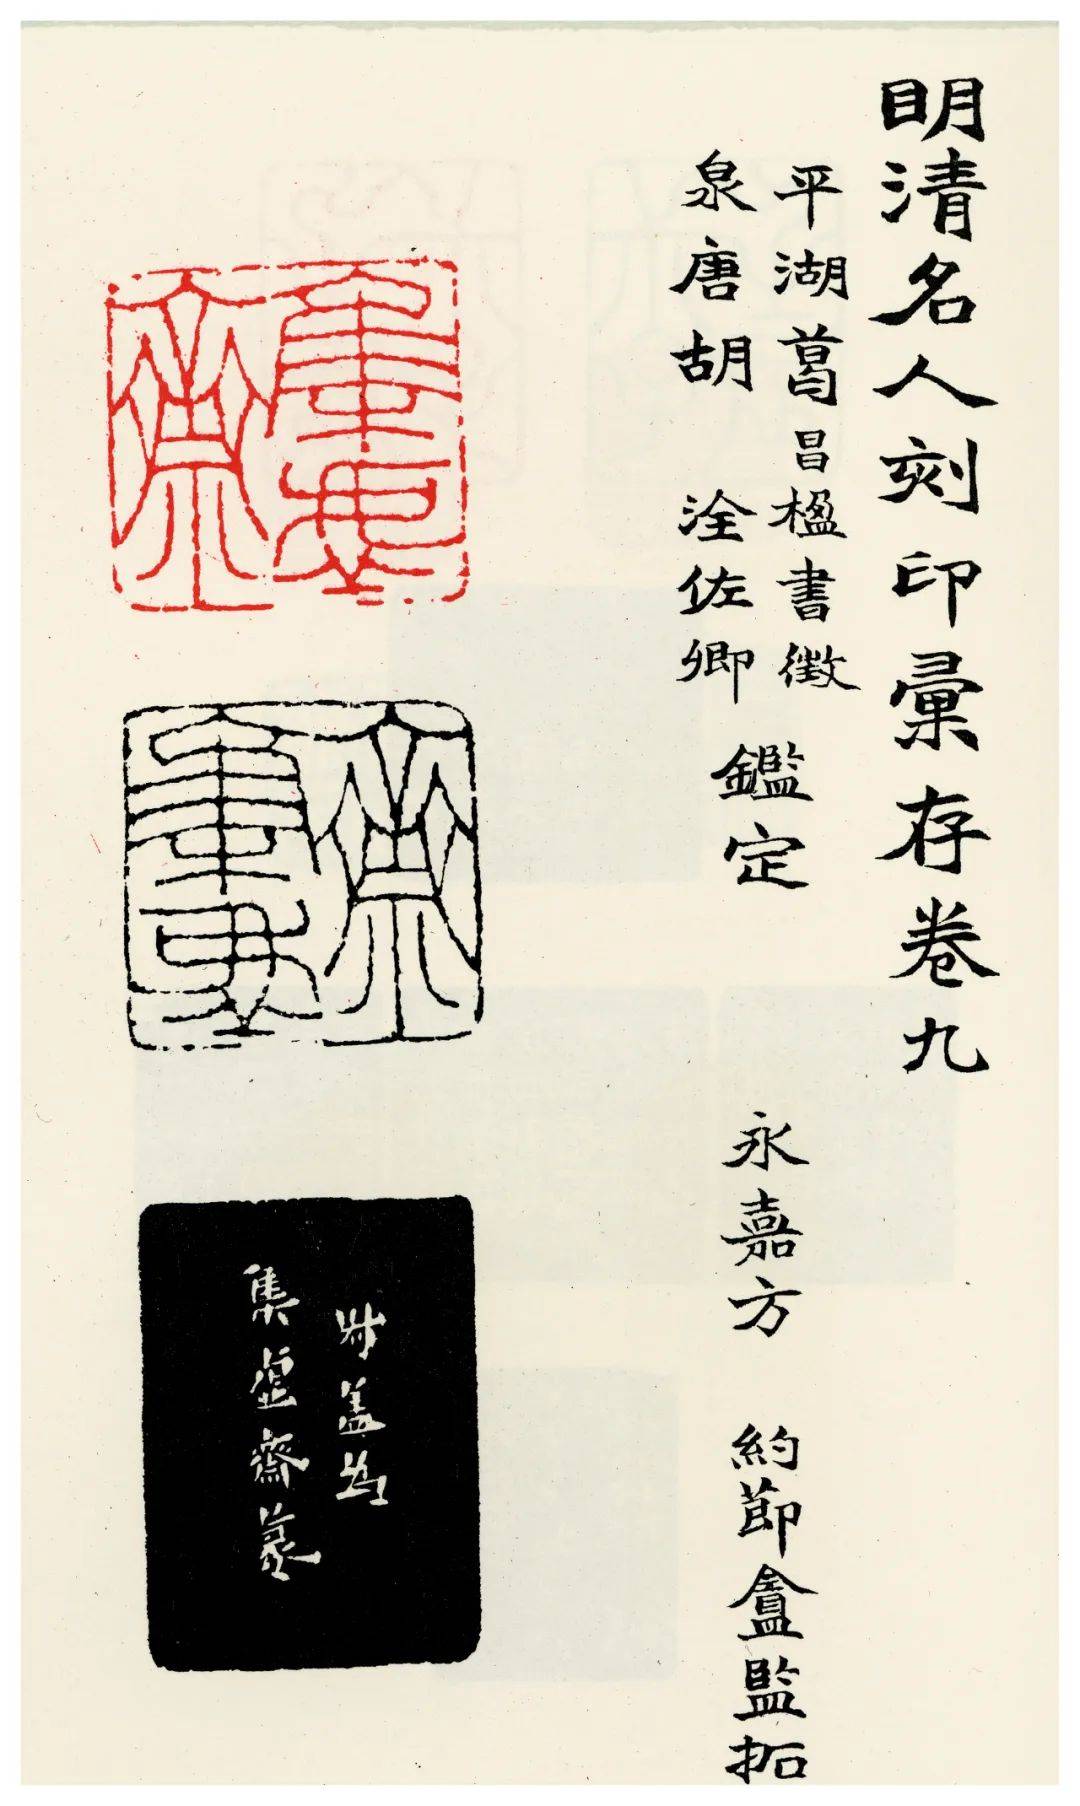 明清名人刻印彙存卷九
平湖葛昌楹書徵
泉唐胡 洤佐卿
鑑定
永嘉方 約節盦監拓
叔蓋為
集虛齋篆